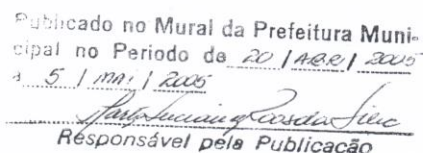 Publicado no Mural da Prefeitura Muni-
cipal no Periodo de 20 / ABR / 2005
a 5 / MAI / 2005
Responsável pela Publicação